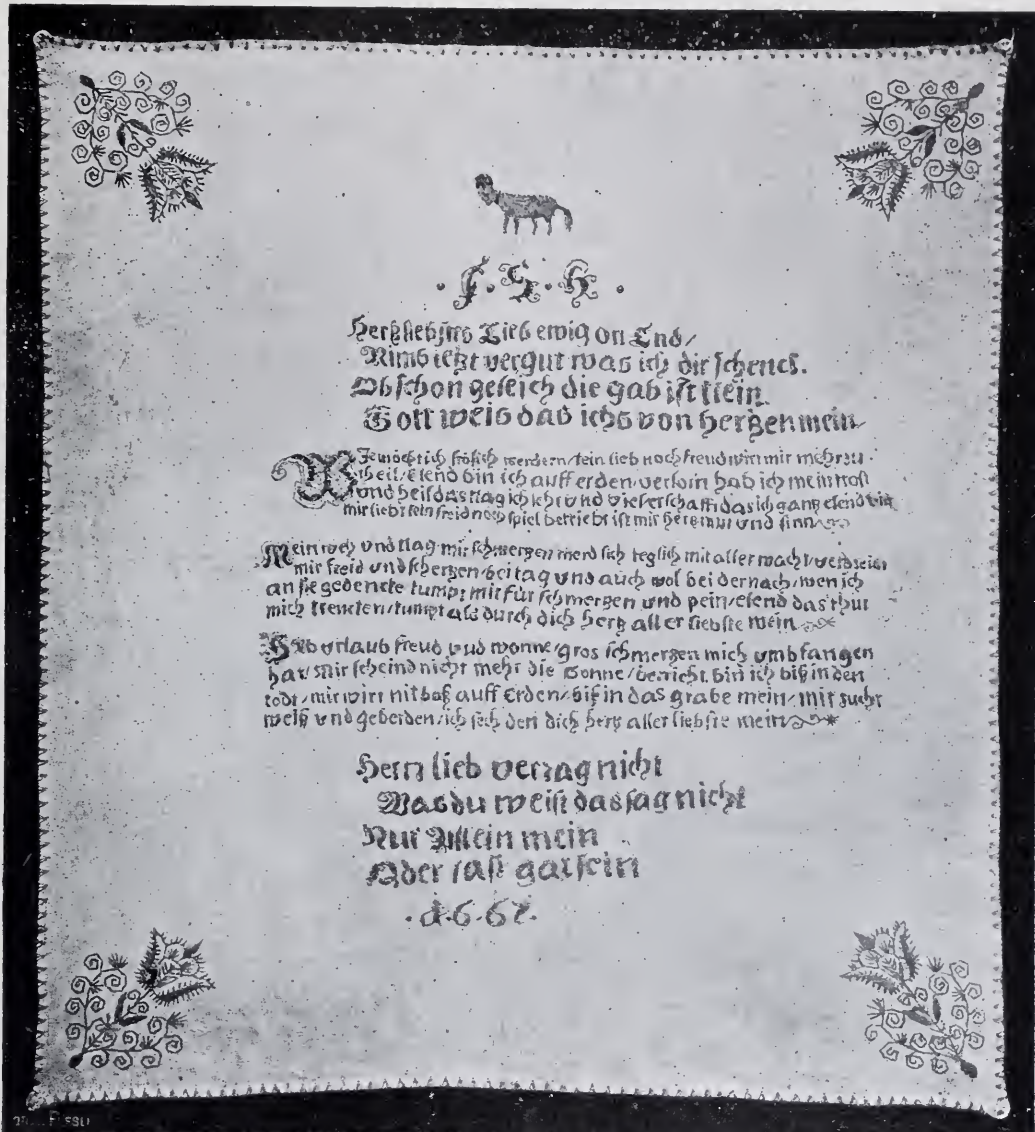 · J · S · H ·
Hertzliebstes Lieb ewig on End/
Nimb ietzt vergut was ich dir schenck.
Obschon geleich die gab ist klein
Gott weis das ichs von hertzen mein
Wie möcht ich frölich werdern/kein lieb noch freud wirt mir mehr zu
theil/Elend bin ich auff erden/verlorn hab ich mein trost
und heil/das klag ich und das ich gantz elend bin
mir liebt kein freid noch spiel betriebt ist mir hertz mut und sinn
Mein weh und klag mir schmertzen merd sich teglich mit aller macht/
mir freid und schertzen/bei tag und auch wol bei der nach/wen ich
an sie gedencke kumpt mir für schmertzen und pein/elend das thut
mich krencken/kumpt als durch dich hertz all er liebste mein
Hab urlaub freud und wonne/gros schmertzen mich umbfangen
hat/Mir scheind nicht mehr die Sonne/ bin ich biß in den
todt/mir wirt nit baß auff Erden/biß in das grabe mein/mit zucht
weiß und geberden/ich den dich hertz aller liebste mein
Hertz lieb verzag nicht
Was du weist das sag nicht
Nur Allein mein
Oder laß gar sein